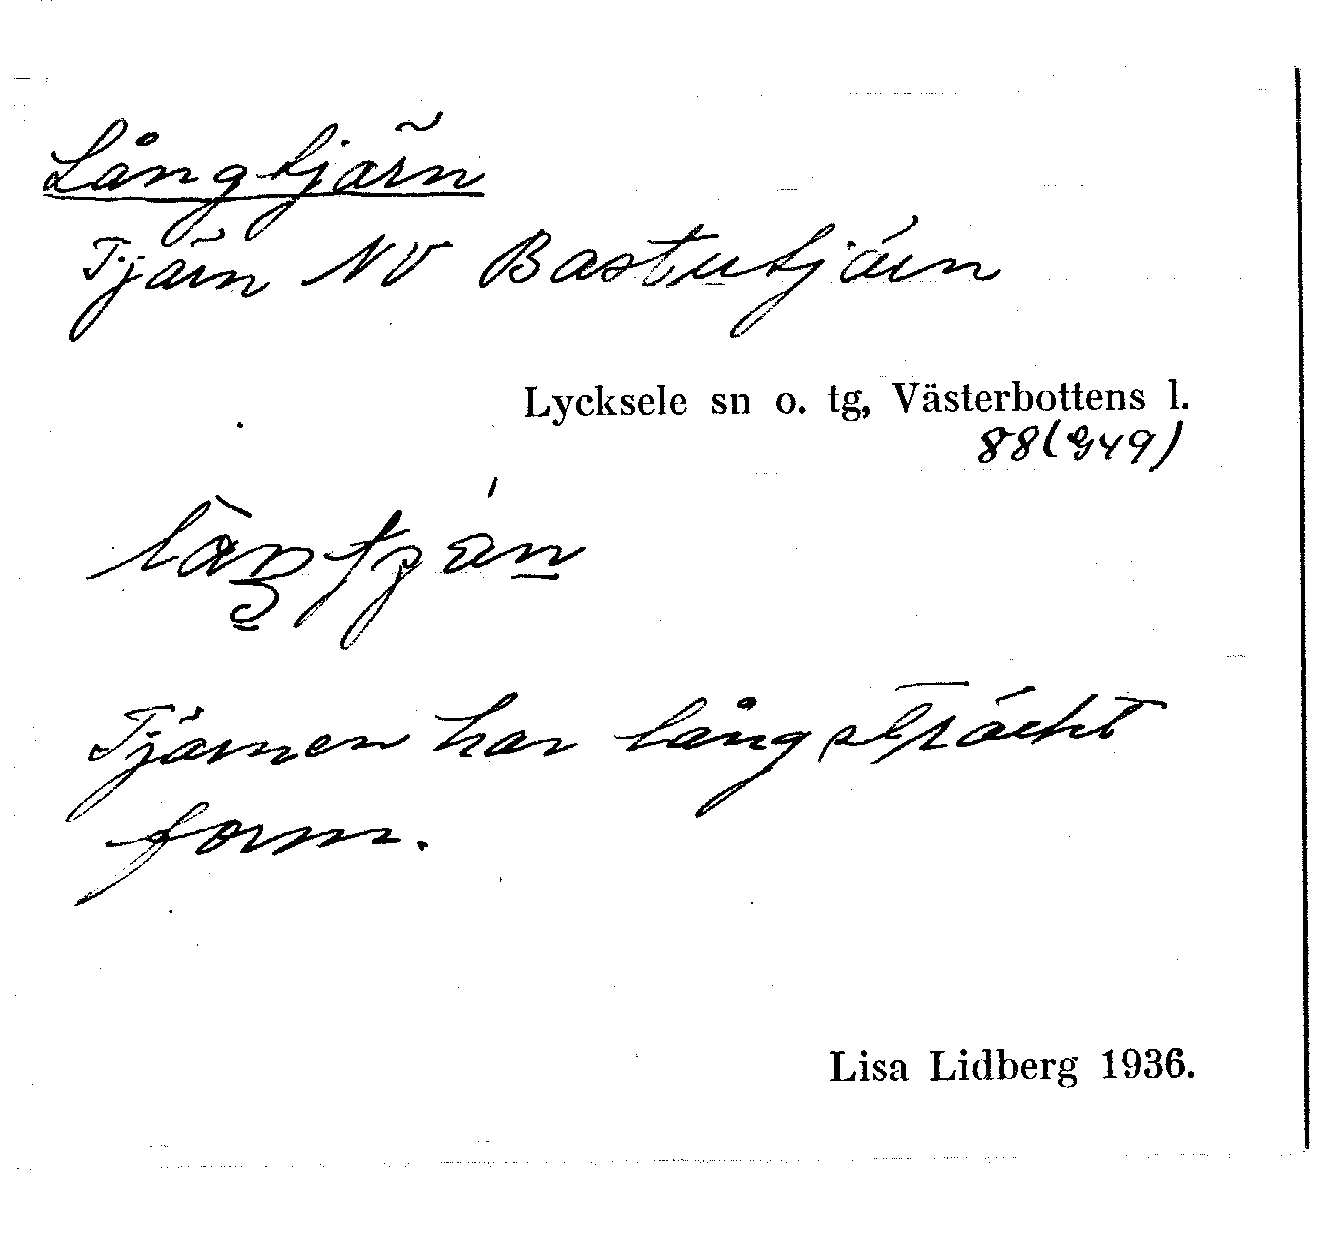 Långtjärn
Tjärn NV Bastutjärn
Lycksele sn o. tg, Västerbottens l.
Tjärnen har långsträckt
form.
Lisa Lidberg 1936.